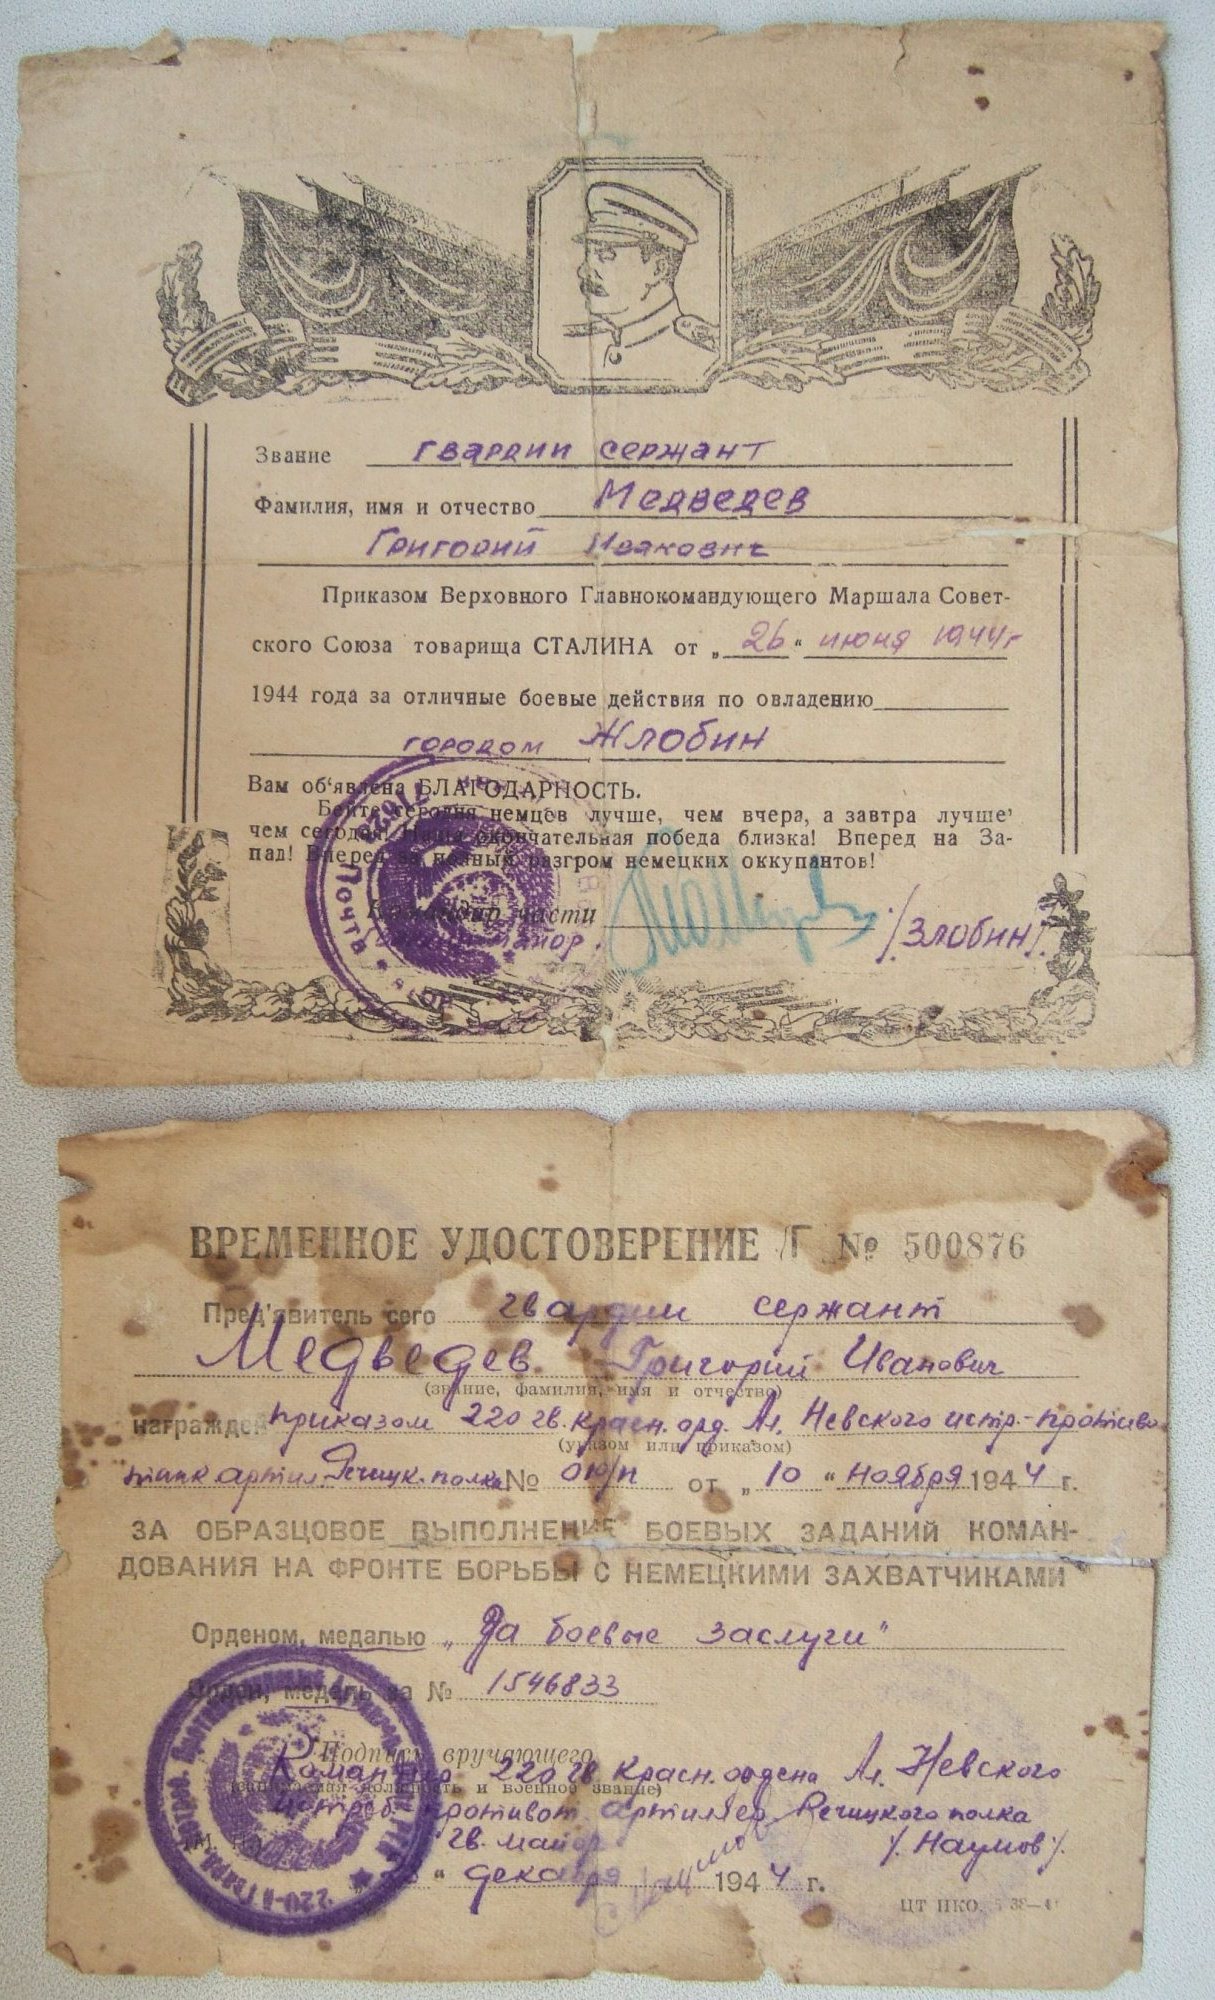 Звание гвардии сержант
Фамилия, имя и отчество Медведев
Григорий Иванович
Приказом Верховного Главнокомандующего Маршала Совет-
ского Союза товарища СТАЛИНА от „26“ июня 1944 г
1944 года за отличные боевые действия по овладению
городом Жлобин
Вам об‘явлена БЛАГОДАРНОСТЬ.
Бейте сегодня немцев лучше, чем вчера, а завтра лучше‘
чем сегодня! Наша окончательная победа близка! Вперед на За-
пад! Вперед за полный разгром немецких оккупантов!
Командир части
майор /Злобин/.
ВРЕМЕННОЕ УДОСТОВЕРЕНИЕ Г № 500876
Пред'явитель сего гвардии сержант
Медведев Григорий Иванович
(звание, фамилия, имя и отчество)
награжден приказом 220 гв. красн. орд. Ал. Невского истр.-противо
(указом или приказом)
танк артил. Речицк. полка № 010/н от „10“ ноября 1944 г.
ЗА ОБРАЗЦОВОЕ ВЫПОЛНЕНИЕ БОЕВЫХ ЗАДАНИЙ КОМАН-
ДОВАНИЯ НА ФРОНТЕ БОРЬБЫ С НЕМЕЦКИМИ ЗАХВАТЧИКАМИ
Орденом, медалью „За боевые заслуги“
Орден, медаль за № 1546833
Подпись вручающего
Командир 220 гв красн. ордена Ал. Невского
(занимаемая должность и военное звание)
истреб. противот. артиллер Речицкого полка
гв. майор /. Наумов /.
“ декабря 1944 г.
ЦТ НКО.